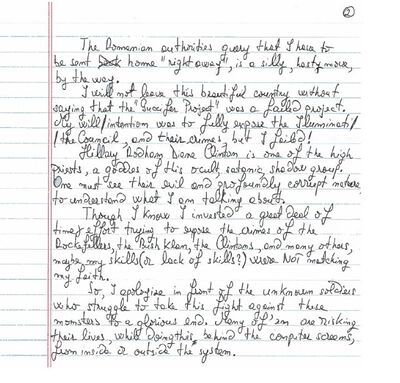 ②
The Romanian authorities query that I have to
be sent home "right away", is a silly, hasty move,
by the way.
I will not leave this beautiful country without
saying that the "Guccifer Project" was a failed project.
My will/intention was to fully expose the Illuminati/
/the Council, and their crimes, but I failed!
Hillary Rodham Diane Clinton is one of the high
priests, a goddes of this occult, satanic, shadow group.
One must see their evil and profoundly corrupt nature
to understand what I am talking about.
Though I know I invested a great deal of
time/effort trying to expose the crimes of the
Rockafellers, the Bush Klan, the Clintons, and many others,
maybe my skills (or lack of skills?) were NOT matching
my faith.
So, I apologise in front of the unknown soldiers
who struggle to take this fight against these
monsters to a glorious end. Many of 'em are risking
their lives, while doing this, behind the computer screens,
from inside or outside the "system".